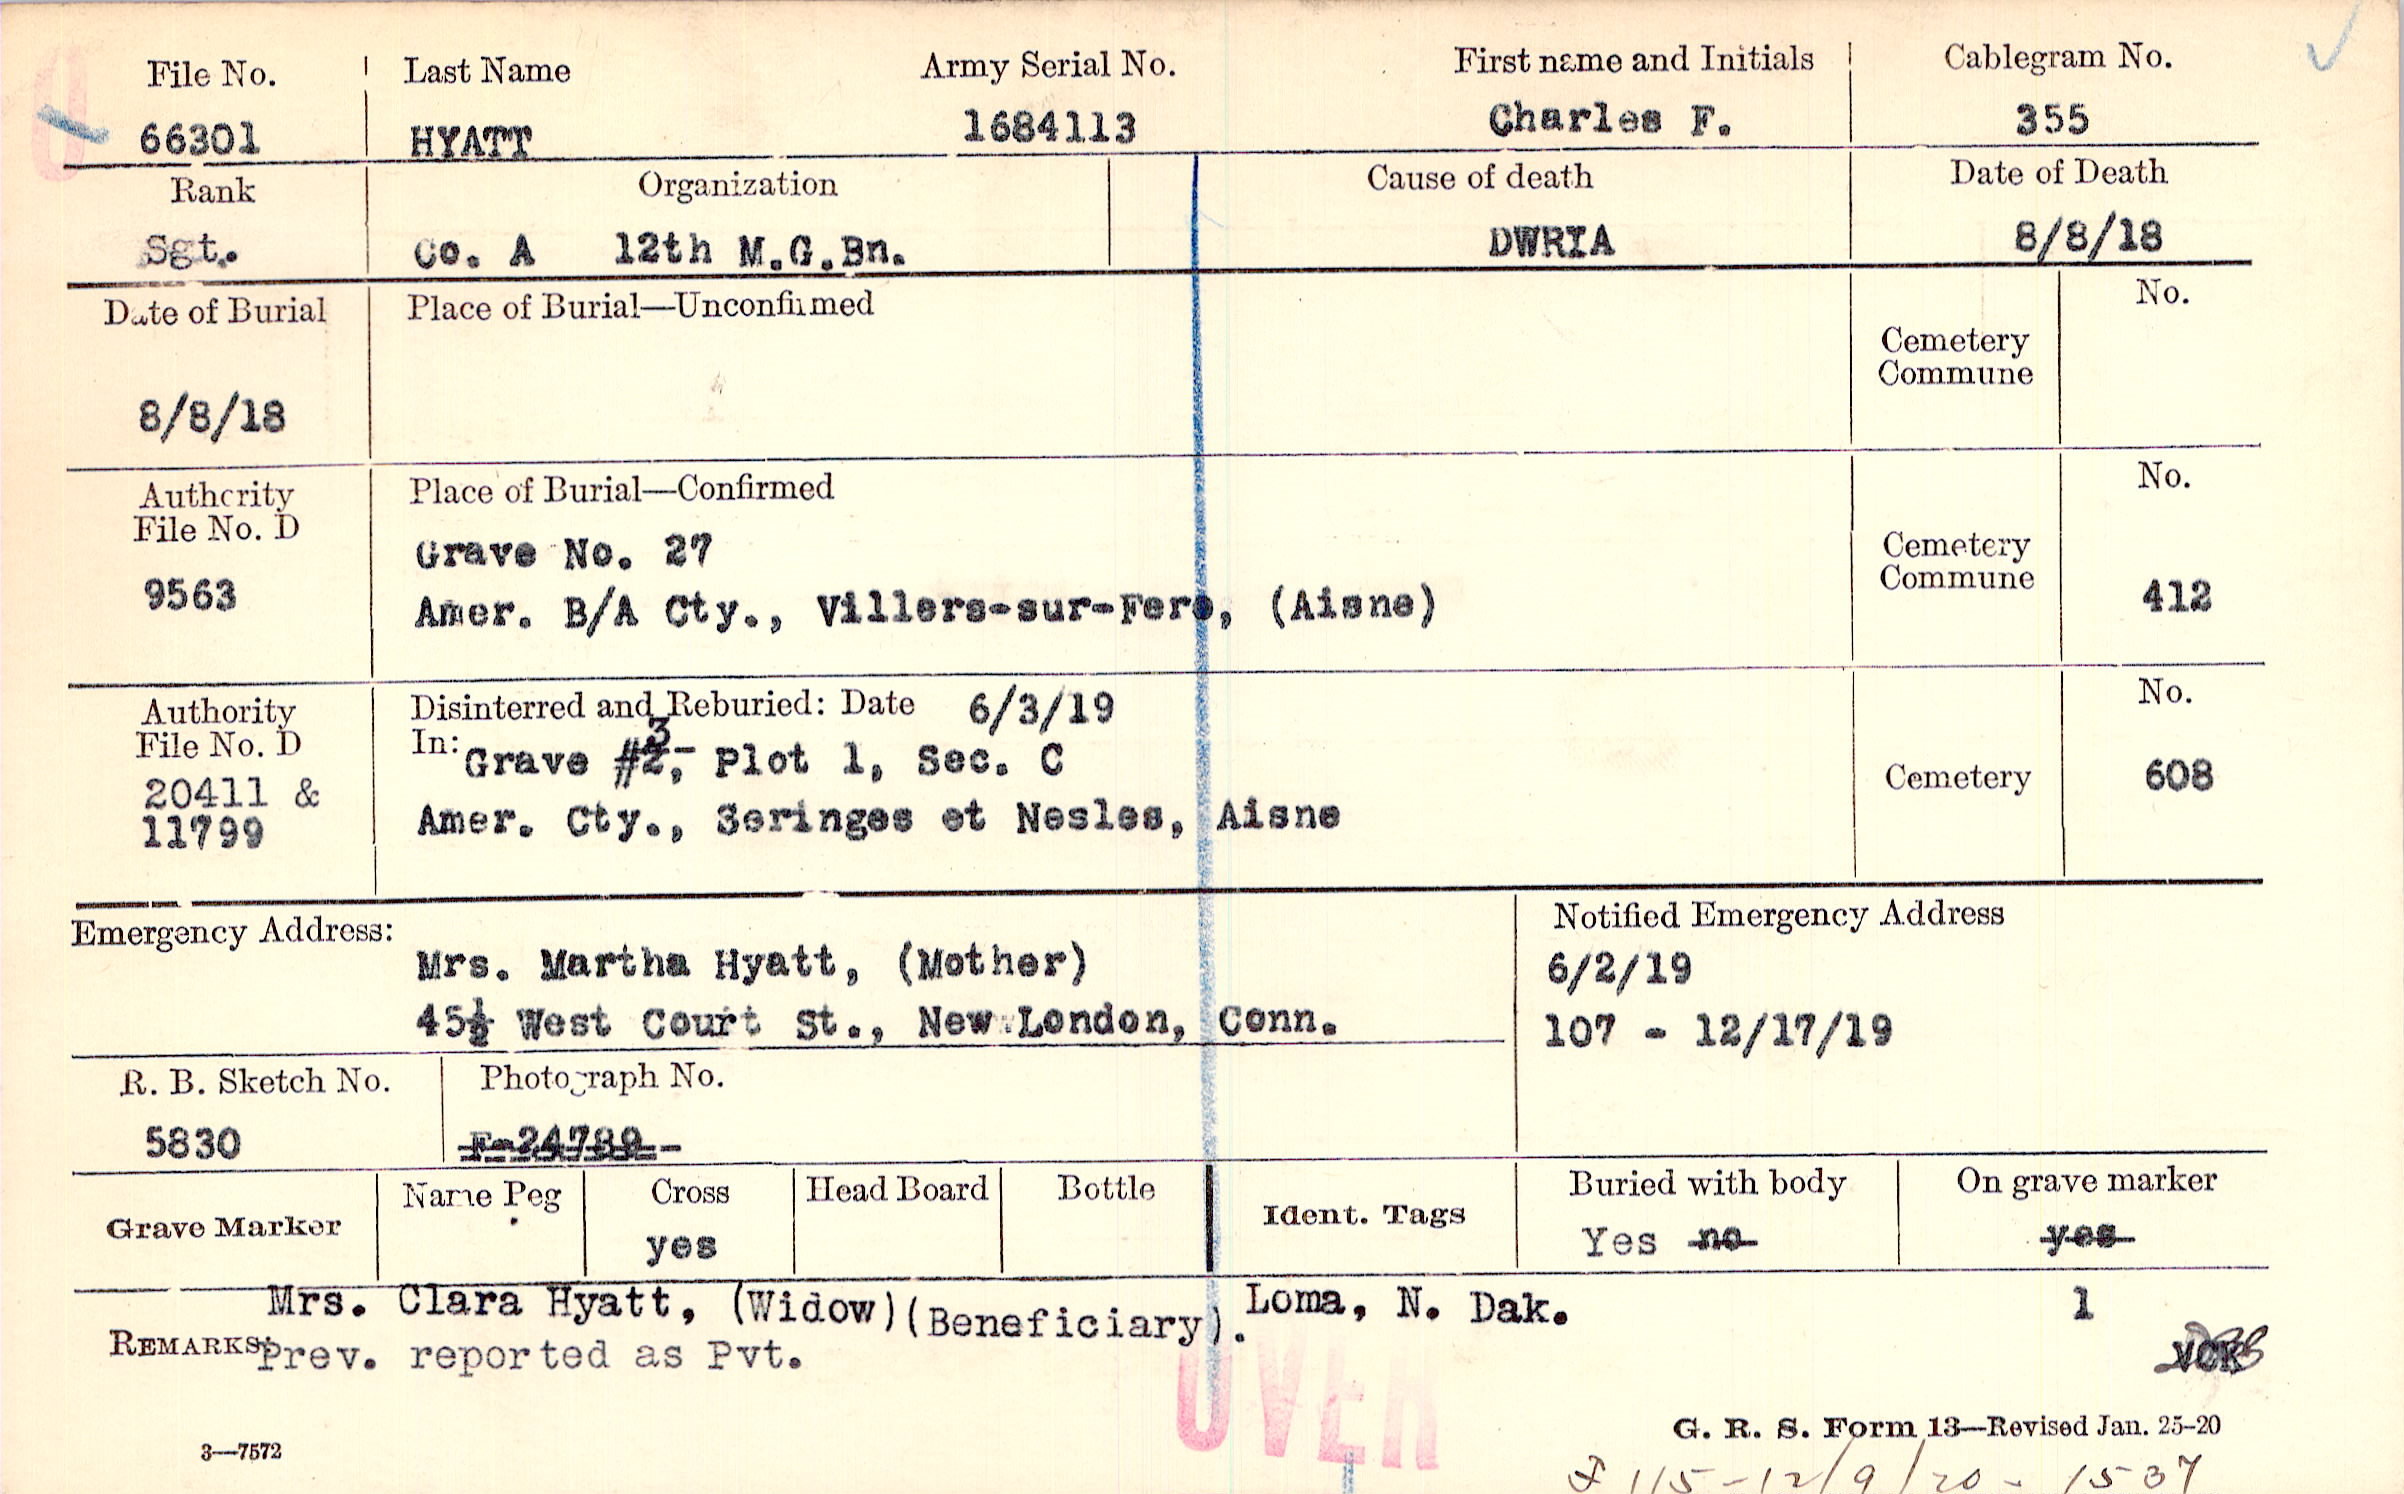 File No. Last Name Army Serial No. First name and Initials Cablegram No.
66301 HYATT 1684113 Charles F. 355
Rank Organization Cause of death Date of Death
Sgt. Co. A 12th M.G.Bn. DWRIA 8/8/18
Date of Burial Place of Burial—Unconfirmed No.
Cemetery
Commune
8/8/18
Authority Place of Burial—Confirmed No.
File No. D
Grave No. 27 Cemetery
9563 Amer. B/A Cty., Villers-sur-Fere, (Aisne) Commune 412
Authority Disinterred and Reburied: Date 6/3/19 No.
File No. D In: Grave #2, 3 Plot 1, Sec. C
20411 & Cemetery 608
11799 Amer. Cty., Seringes et Nesles, Aisne
Emergency Address: Notified Emergency Address
Mrs. Martha Hyatt, (Mother) 6/2/19
45½ West Court St., New London, Conn. 107 - 12/17/19
R. B. Sketch No. Photograph No.
5830 F-24789
Grave Marker Name Peg Cross Head Board Bottle Ident. Tags Buried with body On grave marker
yes Yes no yes
Mrs. Clara Hyatt, (Widow)(Beneficiary). Loma, N. Dak. 1
REMARKS: Prev. reported as Pvt. VCK
OVER
G. R. S. Form 13—Revised Jan. 25-20
3—7572
115-12/9/20- 1537